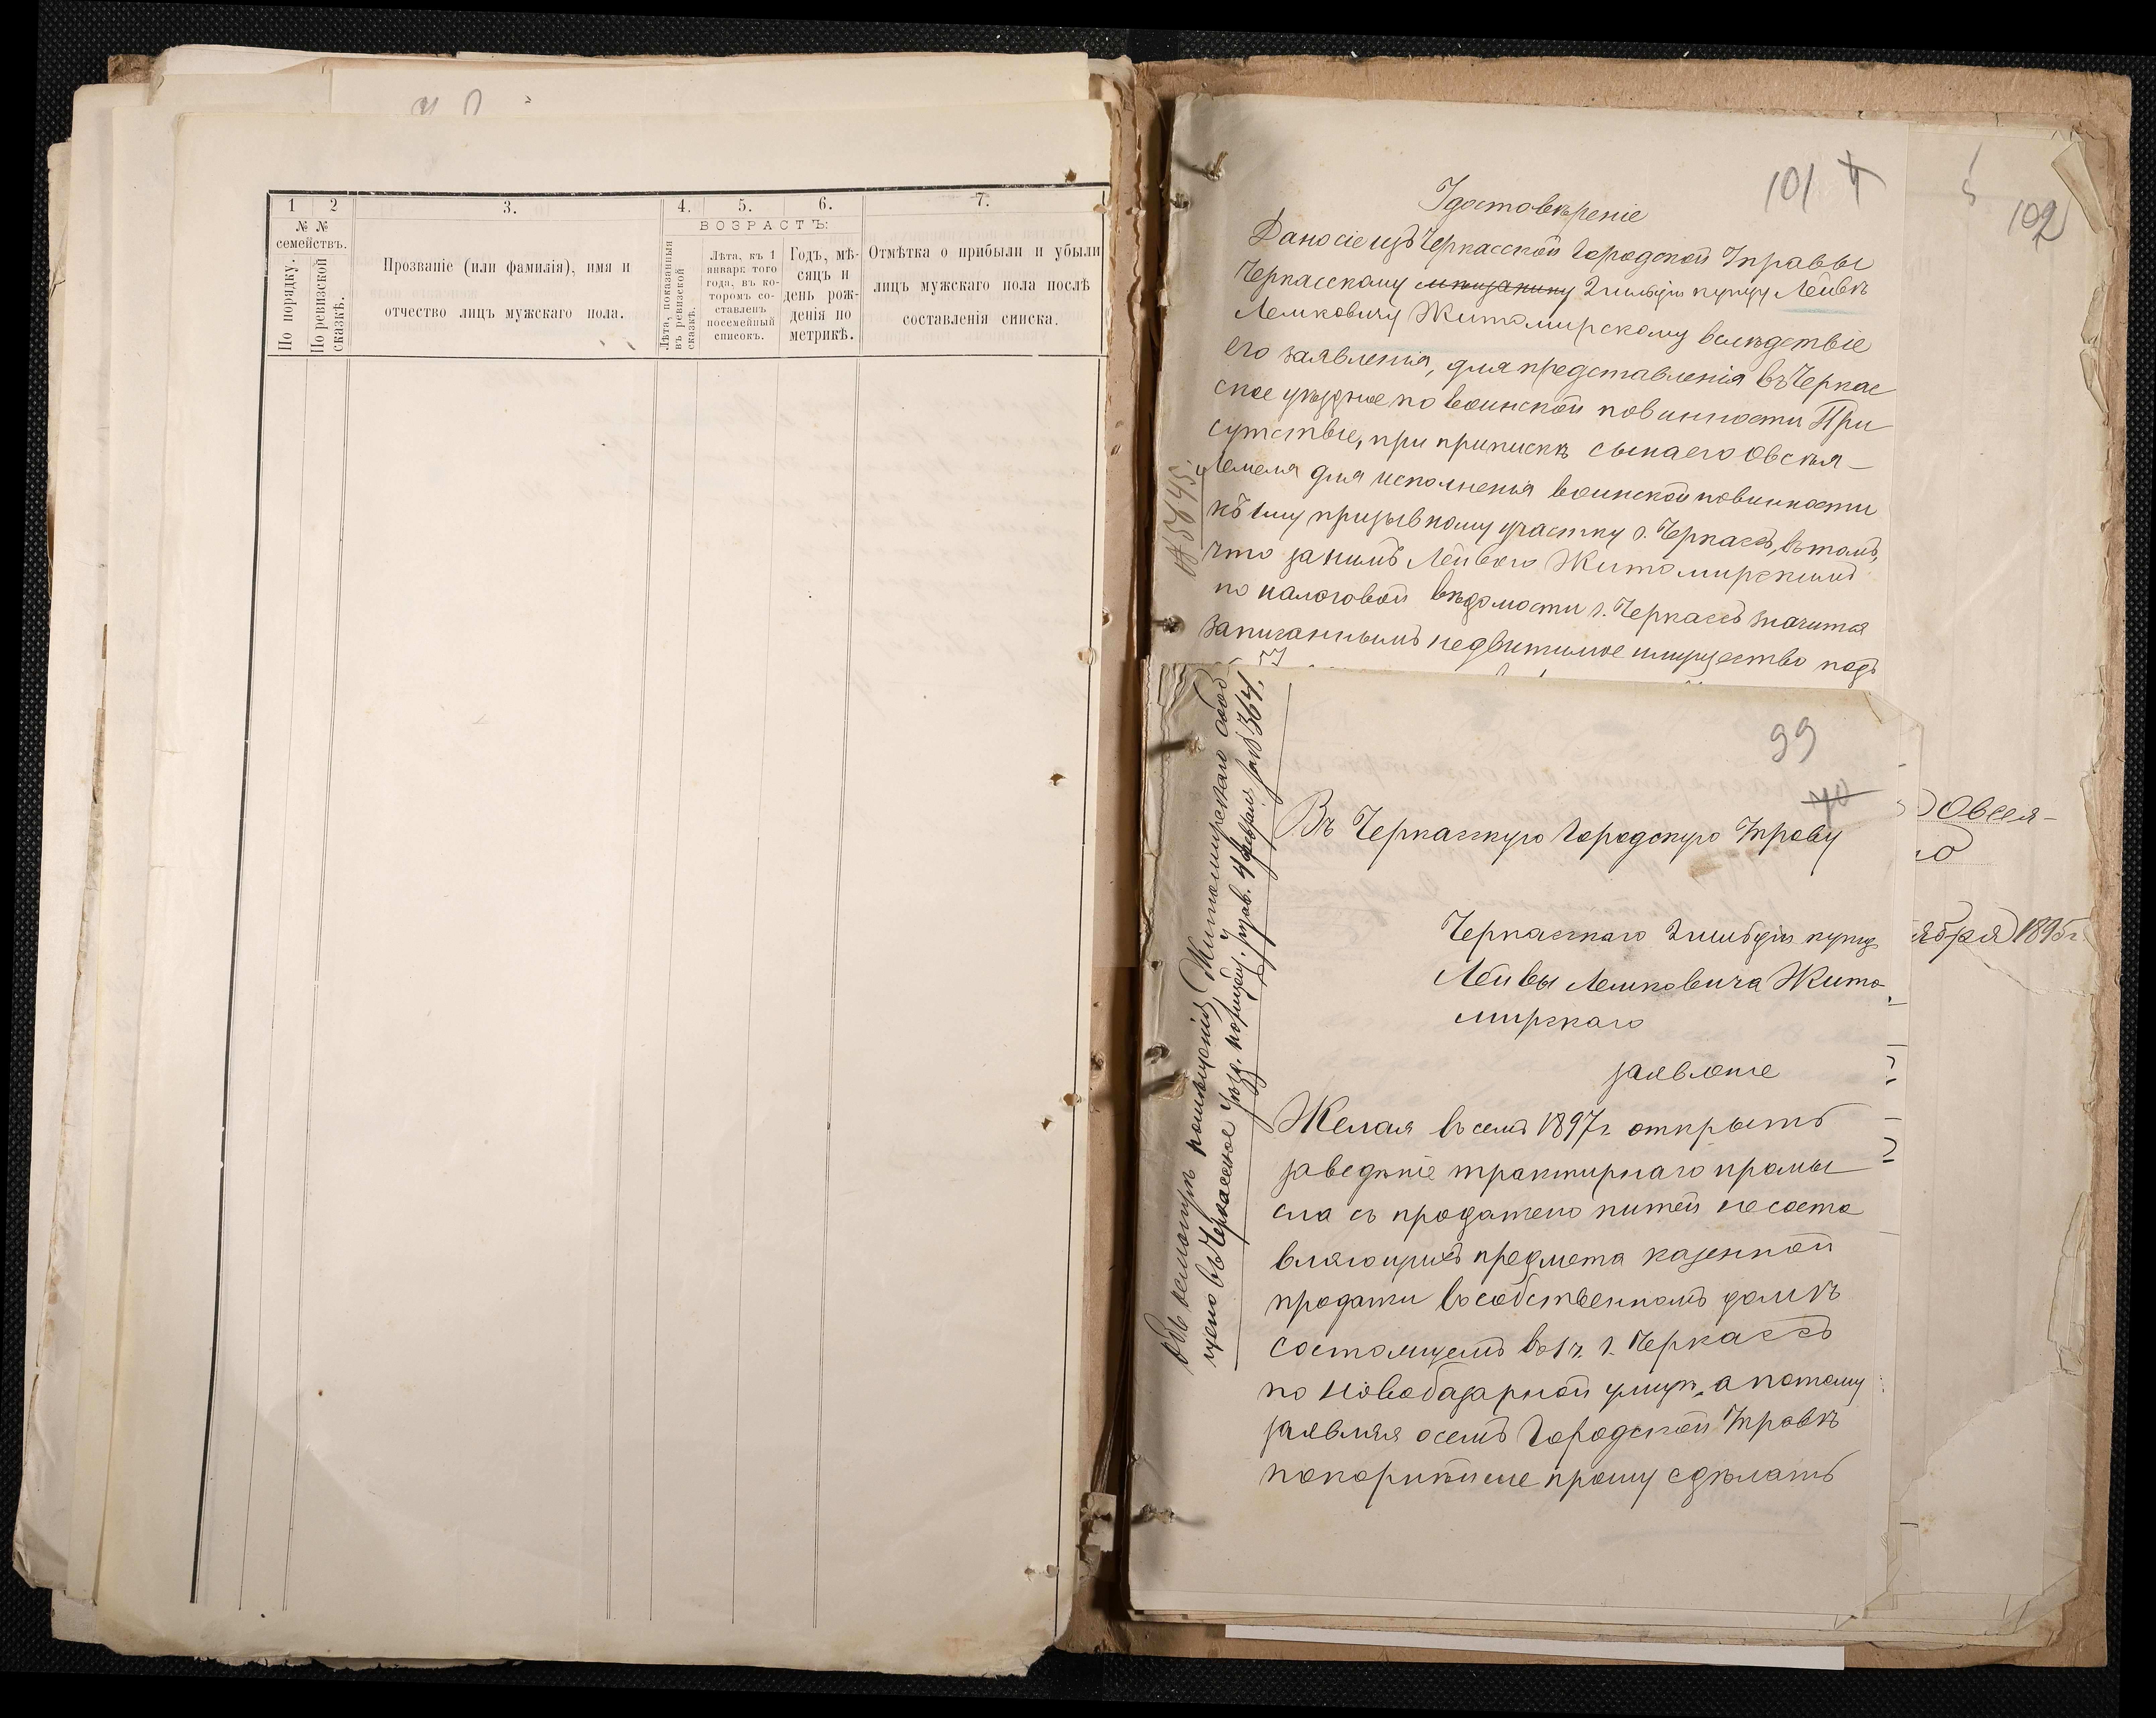 1 2 3. 4. 5. 6. 7.
№ №
семействъ.
По порядку.
По ревизской
сказкѣ.
Прозваніе (или фамилія), имя и
отчество лицъ мужскаго пола.
ВОЗРАСТЪ:
Лѣта, показанныя
въ ревизской
сказкѣ.
Лѣта, къ 1
января того
года, въ ко-
торомъ со-
ставленъ
посемейный
списокъ.
Годъ, мѣ-
сяцъ и
день рож-
денія по
метрикѣ.
Отмѣтка о прибыли и убыли
лицъ мужскаго пола послѣ
составленія списка.
101
Удостовѣреніе
Дано сіе изъ Черкасской Городской Управы
Черкасскому мѣщанину 2 гильдіи купцу Лейбѣ
Лемковичу Житомирскому вслѣдствіе
его заявленія, для представленія въ Черкас
ское уѣздное по воинской повинности При
сутствіе, при припискѣ сына его Овсѣя-
Лемеля для исполненія воинской повинности
къ 1му призывному участку г. Черкассъ, въ томъ,
что за нимъ Лейбою Житомирскимъ
по налоговой вѣдомости г. Черкассъ значится
записаннымъ недвижимое имущество подъ
№ 5645.
102
Овсея-
ября 1895 г.
99
40
Въ Черкасскую Городскую Управу
Черкасскаго 2 гильдіи купца
Лейбы Лемковича Жито-
мирскаго
заявленіе
Желая въ семъ 1897 г. открыть
заведеніе трактирнаго промы
сла съ продажею питей не соста
вляющихъ предмета казенной
продажи въ собственномъ домѣ
состоящемъ въ 1 ч. г. Черкассъ
по Новобазарной улицѣ, а потому
заявляя о семъ Городской Управѣ
покорнѣйше прошу сдѣлать
Объ осмотрѣ помѣщенія Житомирскаго сооб
щено въ Черкасское уѣзд. полицей. управ. 4 февраля за № 364.